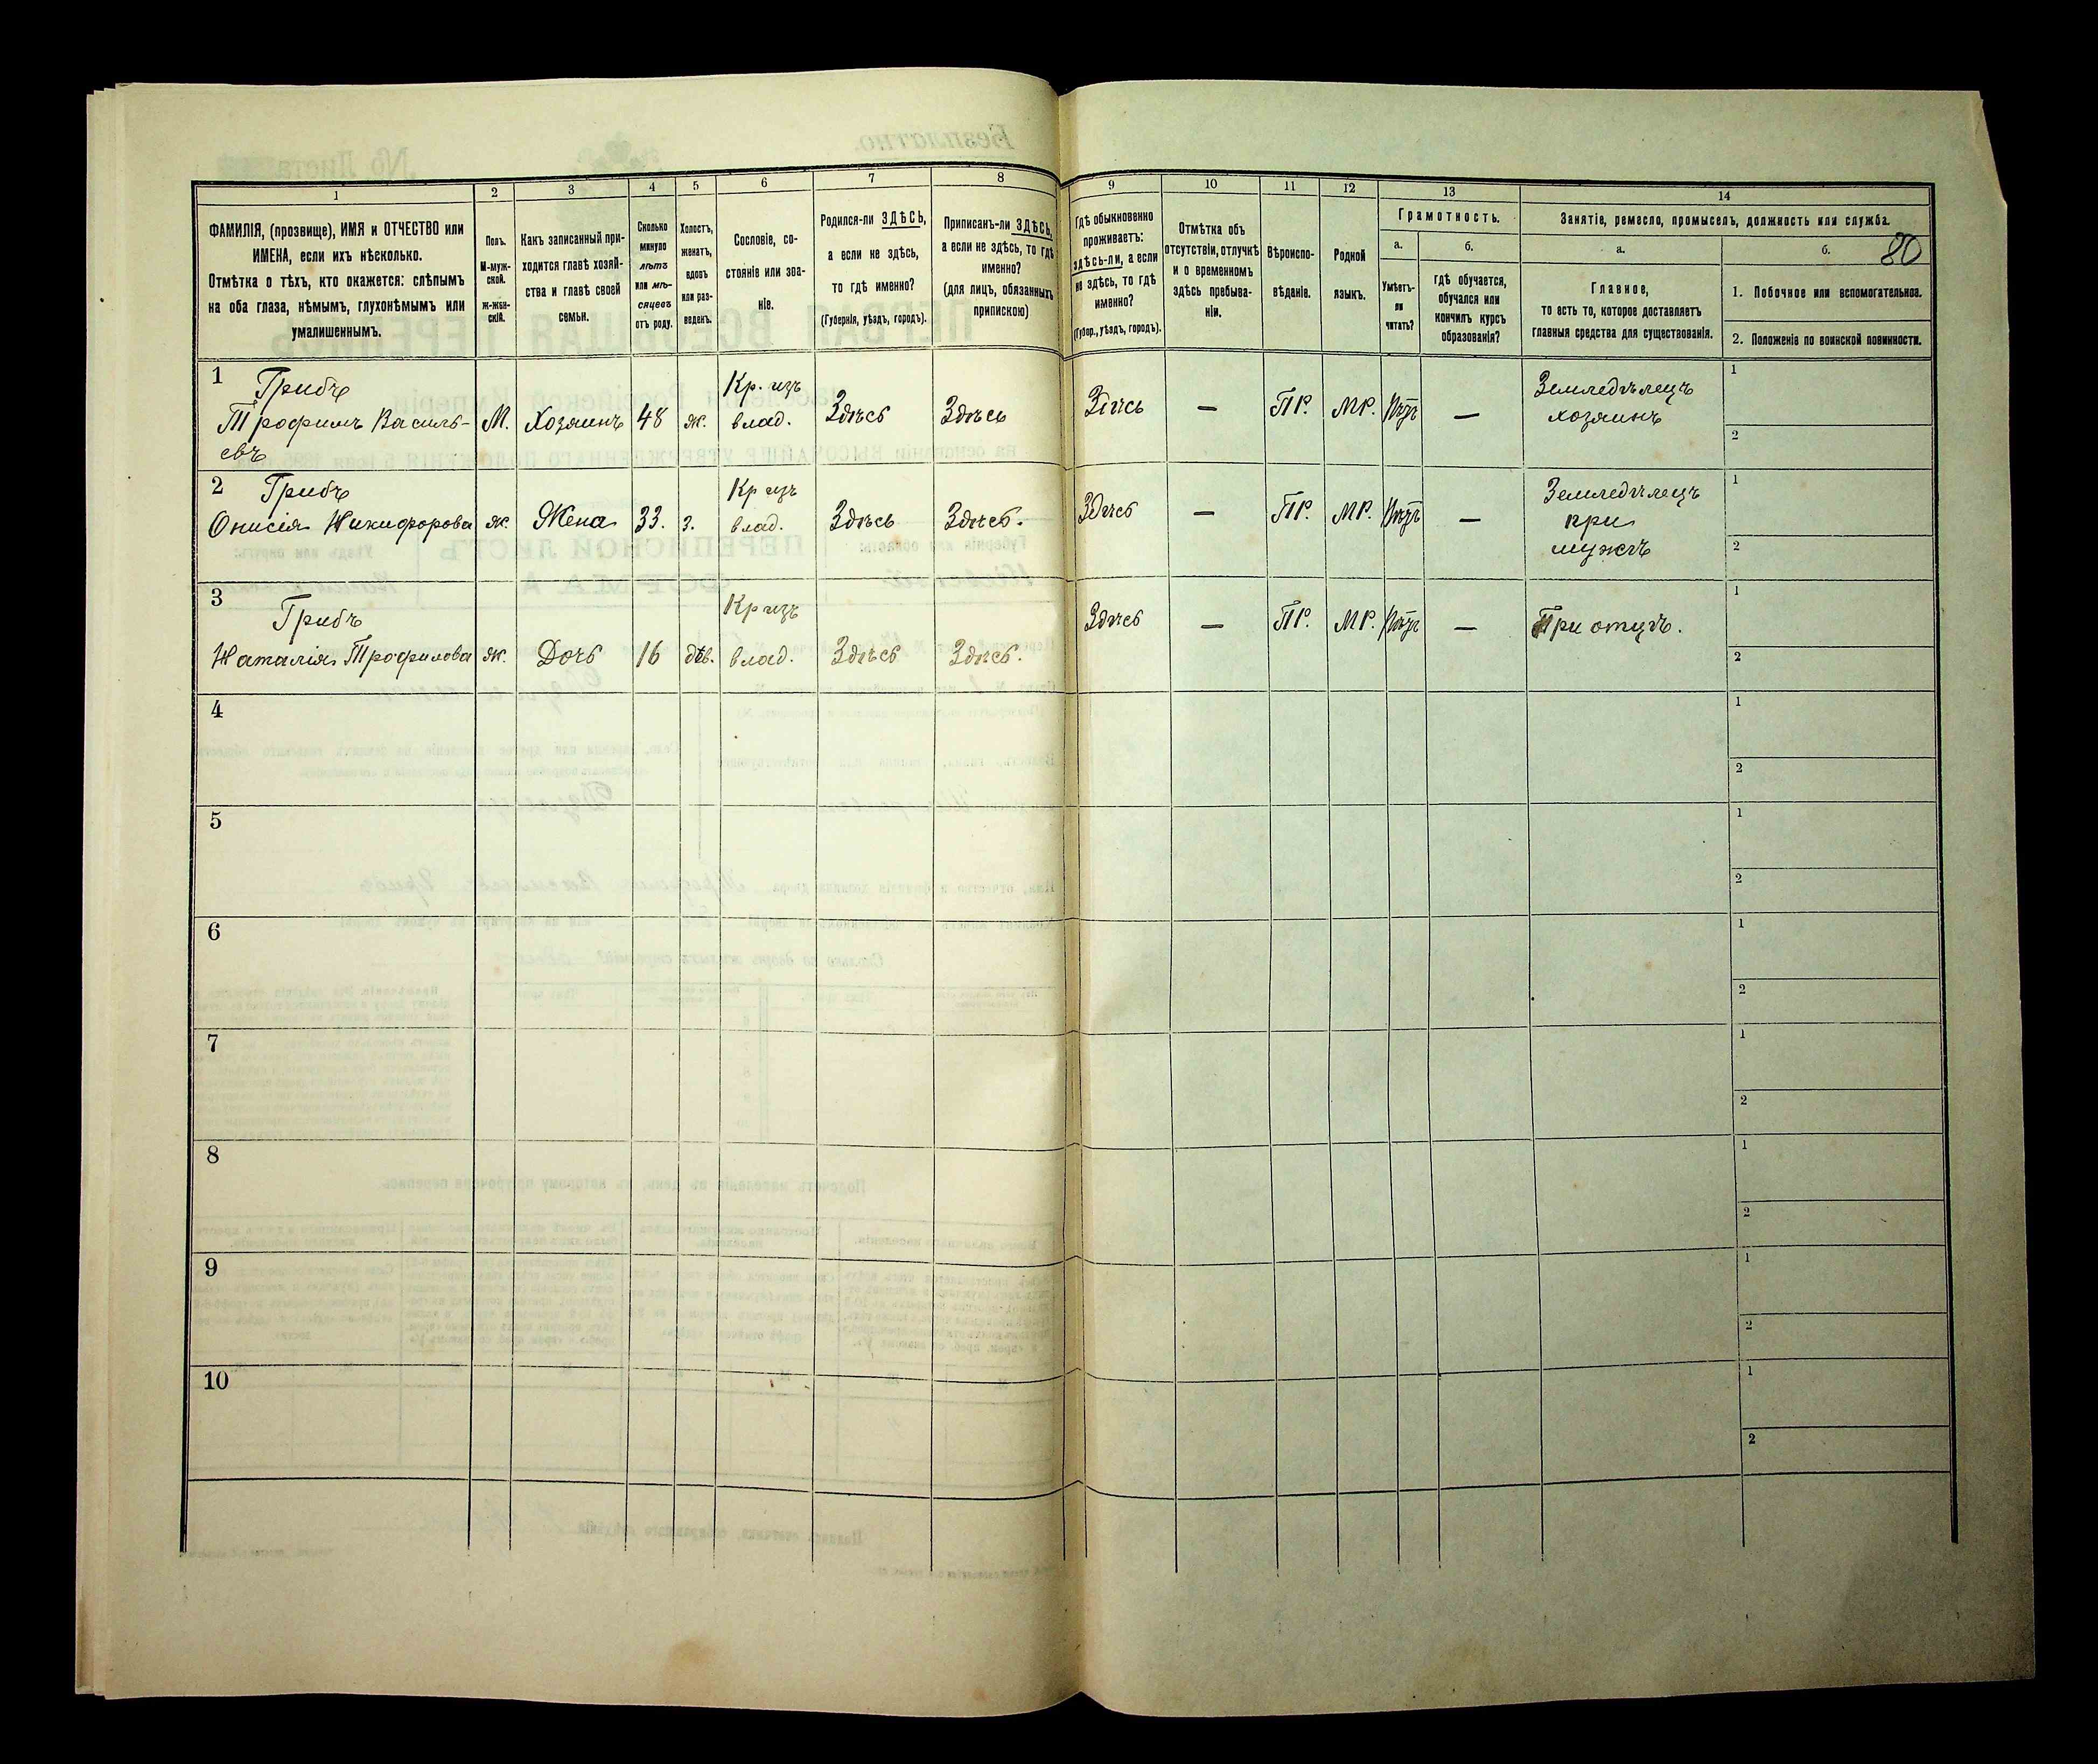 80
1
2
3
4
5
6
7
8
9
10
11
12
13
14
ФАМИЛІЯ, (прозвище), ИМЯ и ОТЧЕСТВО или
ИМЕНА, если ихъ нѣсколько.
Отмѣтка о тѣхъ, кто окажется: слѣпымъ
на оба глаза, нѣмымъ, глухонѣмымъ или
умалишеннымъ.
Полъ.
М-муж-
ской.
ж-жен-
скій.
Какъ записанный при-
ходится главѣ хозяй-
ства и главѣ своей
семьи.
Сколько
минуло
лѣтъ
или мѣ-
сяцевъ
отъ роду.
Холостъ,
женатъ,
вдовъ
или раз-
веденъ.
Сословіе, со-
стояніе или зва-
ніе.
Родился-ли ЗДѢСЬ,
а если не здѣсь,
то гдѣ именно?
(Губернія, уѣздъ, городъ).
Приписанъ-ли ЗДѢСЬ,
а если не здѣсь, то гдѣ
именно?
(для лицъ, обязанныхъ
припискою)
Гдѣ обыкновенно
проживаетъ:
здѣсь-ли, а если
не здѣсь, то гдѣ
именно?
(Губер., уѣздъ, городъ).
Отмѣтка объ
отсутствіи, отлучкѣ
и о временномъ
здѣсь пребыва-
ніи.
Вѣроиспо-
вѣданіе.
Родной
языкъ.
Грамотность.
а.
Умѣетъ-
ли
читать?
б.
гдѣ обучается,
обучался или
кончилъ курсъ
образованія?
Занятіе, ремесло, промыселъ, должность или служба.
а.
Главное,
то есть то, которое доставляетъ
главныя средства для существованія.
б.
1. Побочное или вспомогательное.
2. Положеніе по воинской повинности.
1
Грибъ
Трофимъ Василь-
евъ
М.
Хозяинъ
48
ж.
Кр. изъ
влад.
Здѣсь
Здѣсь
Здѣсь
—
ПР.
МР.
Нѣтъ
—
Земледѣлецъ
хозяинъ
1
2
2
Грибъ
Онисія Никифорова
ж.
Жена
33.
з.
Кр изъ
влад.
Здѣсь
Здѣсь.
Здѣсь
—
ПР.
МР.
Нѣтъ
—
Земледѣлецъ
при
мужѣ
1
2
3
Грибъ
Наталія Трофимова
ж.
Дочь
16
дѣв.
Кр изъ
влад.
Здѣсь
Здѣсь.
Здѣсь
—
ПР.
МР.
Нѣтъ
—
При отцѣ.
1
2
4
1
2
5
1
2
6
1
2
7
1
2
8
1
2
9
1
2
10
1
2